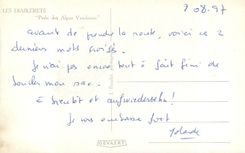 LES DIABLERETS
"Perle des Alpes Vaudoises"
08.97
avant de prendre la route, voici ce 2
derniers mots
Je n'ai pas encore tout à fait fini de
boucler mon sac.
à bientôt et aufwiedersehn!
Je vous embrasse fort
Yolande
GEVAERT